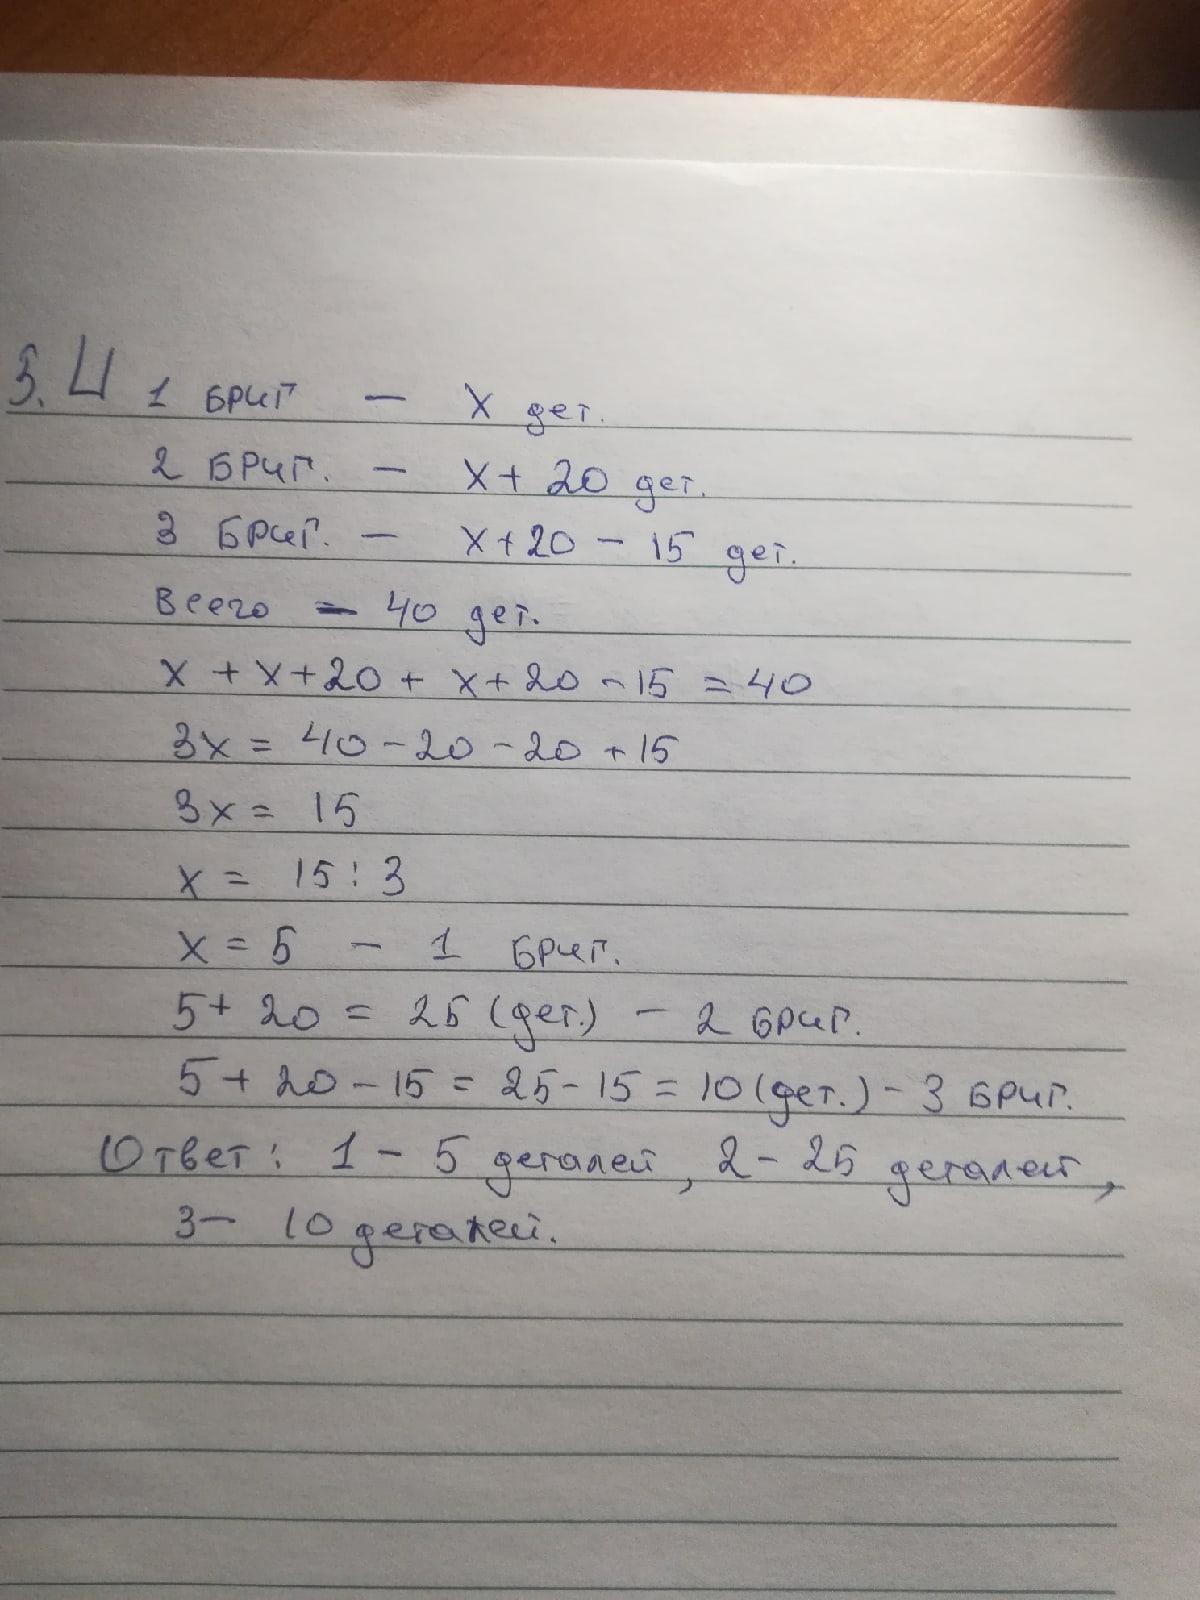 3.4 1 бриг - х дет.
2 бриг. - х+20 дет.
3 бриг. - х+20-15 дет.
Всего - 40 дет.
х+х+20+х+20-15=40
3х=40-20-20+15
3х=15
х=15:3
х=5 - 1 бриг.
5+20=25(дет.) - 2 бриг.
5+20-15=25-15=10(дет.)-3 бриг.
Ответ: 1-5 деталей, 2-25 деталей,
3- 10 деталей.